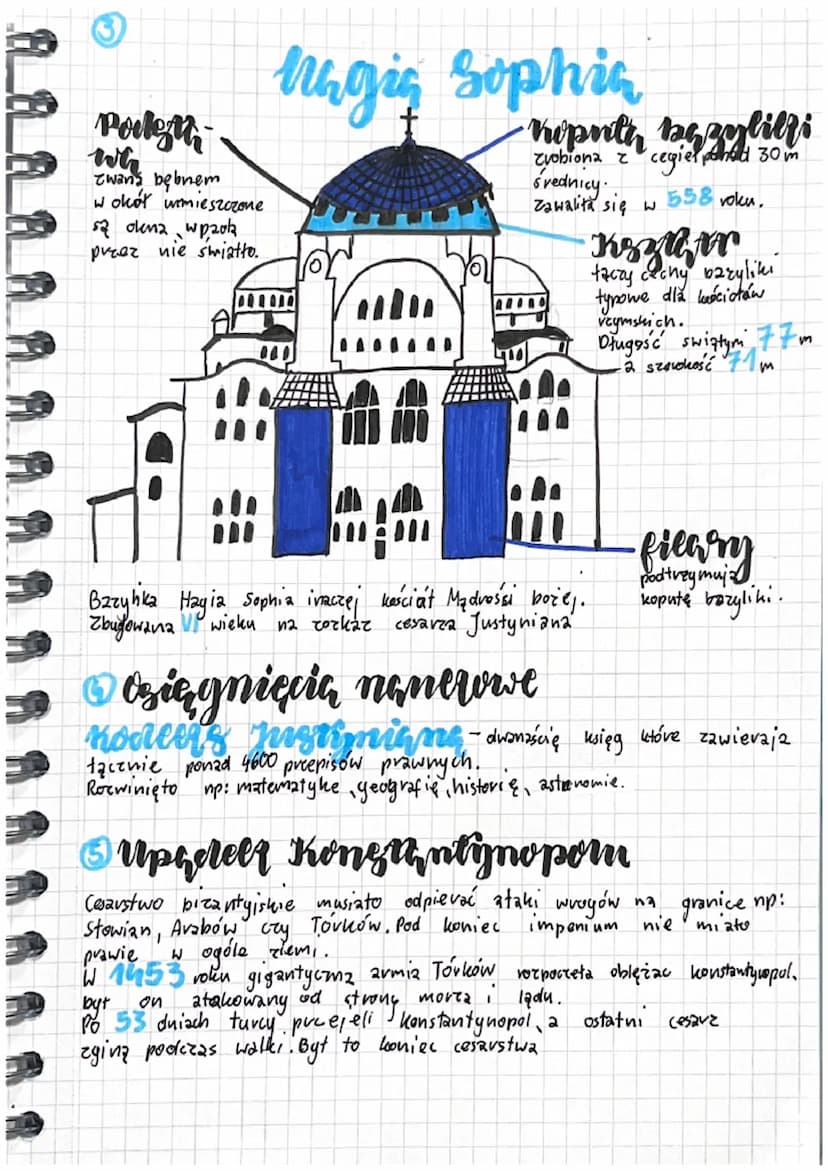 3
Hagia Sophia
Podsta-
wa
zwana bębnem
w okół umieszczone
są okna, wpada
przez nie światło.
Kopuła bazyliki
zrobiona z cegieł ponad 30 m
średnicy.
Zawaliła się w 558 roku.
Kształt
łączy cechy bazyliki
typowe dla kościołów
rzymskich.
Długość świątyni 77 m
a szerokość 71 m
filary
podtrzymują
kopułę bazyliki.
Bazylika Hagia Sophia inaczej kościół Mądrości bożej.
Zbudowana VI wieku na rozkaz cesarza Justyniana
4 Osiągnięcia naukowe
Kodeks Justyniana - dwanaście ksiąg które zawierają
łącznie ponad 4600 przepisów prawnych.
Rozwinięto np: matematykę, geografię, historię, astronomie.
5 Upadek Konstantynopolu
Cesarstwo bizantyjskie musiało odpierać ataki wrogów na granice np:
Słowian, Arabów czy Tórków. Pod koniec imperium nie miało
prawie w ogóle ziemi.
W 1453 roku gigantyczna armia Tórków rozpoczęła oblężać konstantynopol,
był on atakowany od strony morza i lądu.
Po 53 dniach turcy przejeli Konstantynopol, a ostatni cesarz
zginą podczas walki. Był to koniec cesarstwa